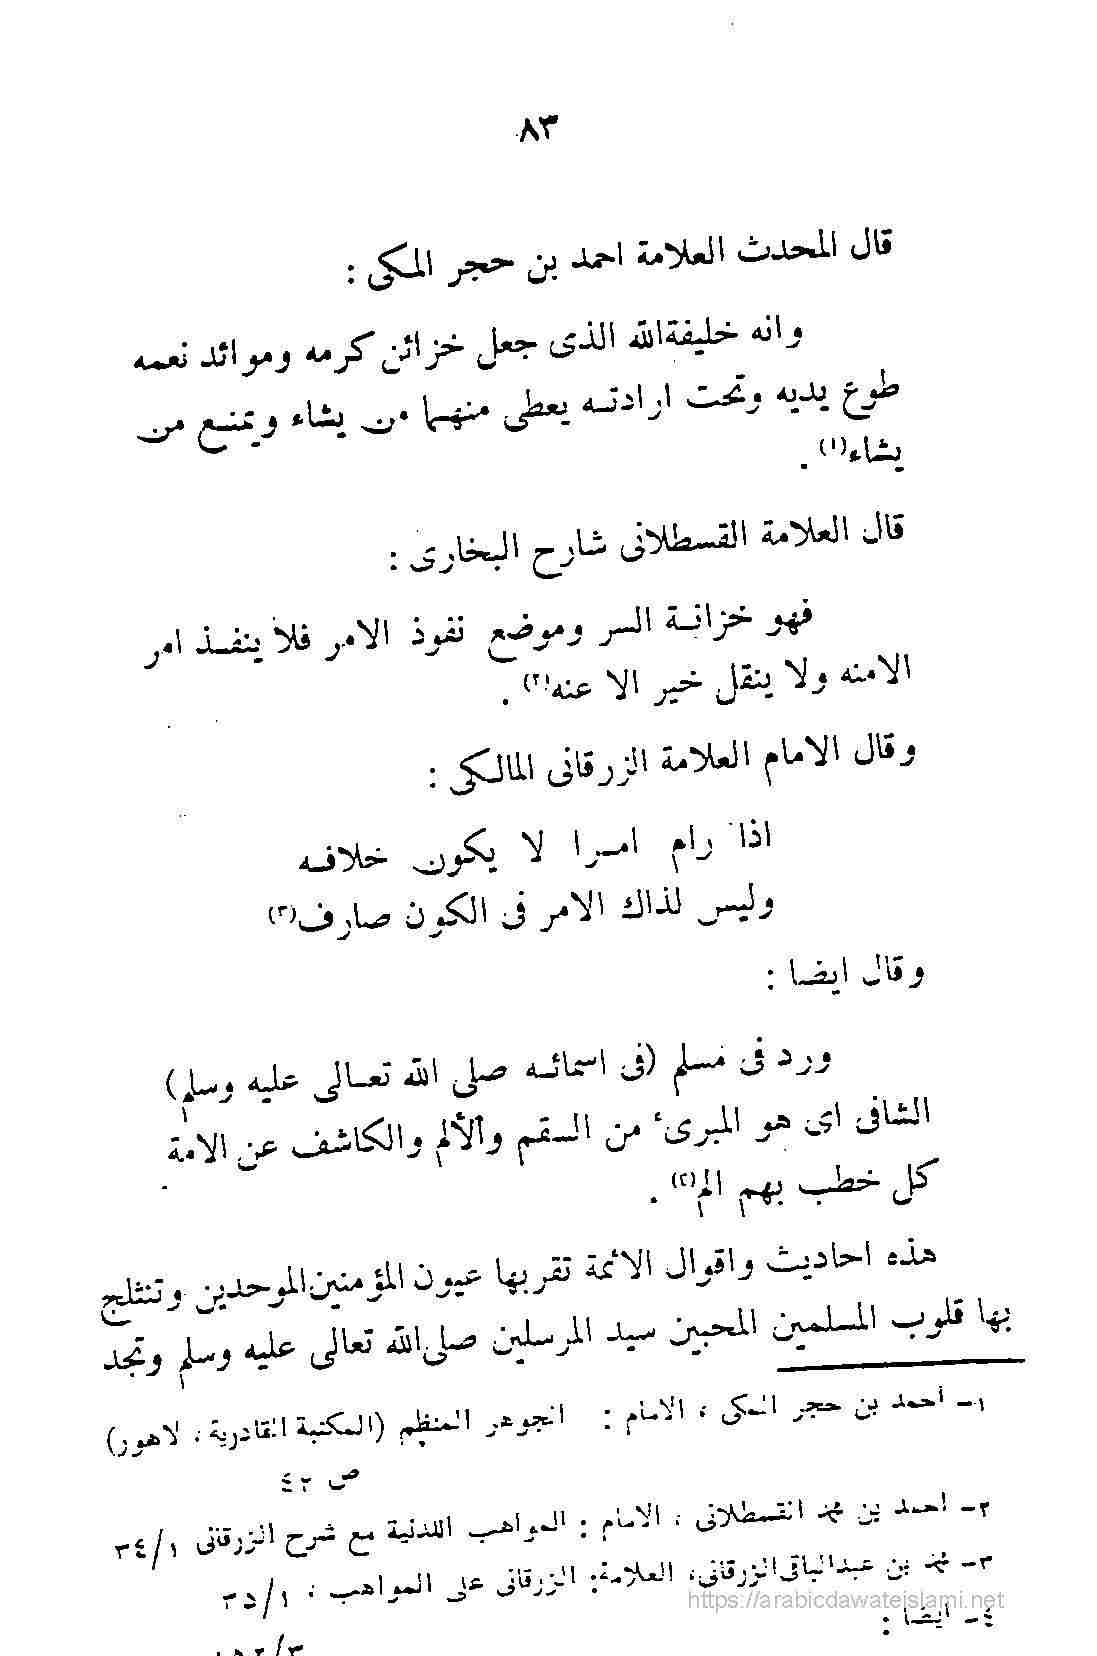 ٨٣
قال المحدث العلامة احمد بن حجر المكى :
وانه خليفةالله الذى جعل خزائن كرمه وموائد نعمه
طوع يديه وتحت ارادته يعطى منهما من يشاء ويمنع من
يشاء(١) .
قال العلامة القسطلانى شارح البخارى :
فهو خزانة السر وموضع نفوذ الامر فلا ينفذ امر
الامنه ولا ينقل خير الا عنه(٢) .
وقال الامام العلامة الزرقانى المالكى :
اذا رام امرا لا يكون خلافه
وليس لذاك الامر فى الكون صارف(٣)
وقال ايضا :
ورد فى مسلم (فى اسمائه صلى الله تعالى عليه وسلم)
الشافى اى هو المبرىء من السقم والألم والكاشف عن الامة
كل خطب بهم الم(٤) .
هذه احاديث واقوال الائمة تقربها عيون المؤمنين الموحدين وتنثلج
بها قلوب المسلمين المحبين سيد المرسلين صلى الله تعالى عليه وسلم وتجد
١ـ احمد بن حجر المكى ، الامام : الجوهر المنظم (المكتبة القادرية ، لاهور)
ص ٤٢
٢ـ احمد بن محمد القسطلانى ، الامام : المواهب اللدنية مع شرح الزرقانى ٣٤/١
٣ـ محمد بن عبدالباقى الزرقانى، العلامة: الزرقانى على المواهب ، ٣٥/١
https://arabicdawateislami.net
٤ـ ايضا :